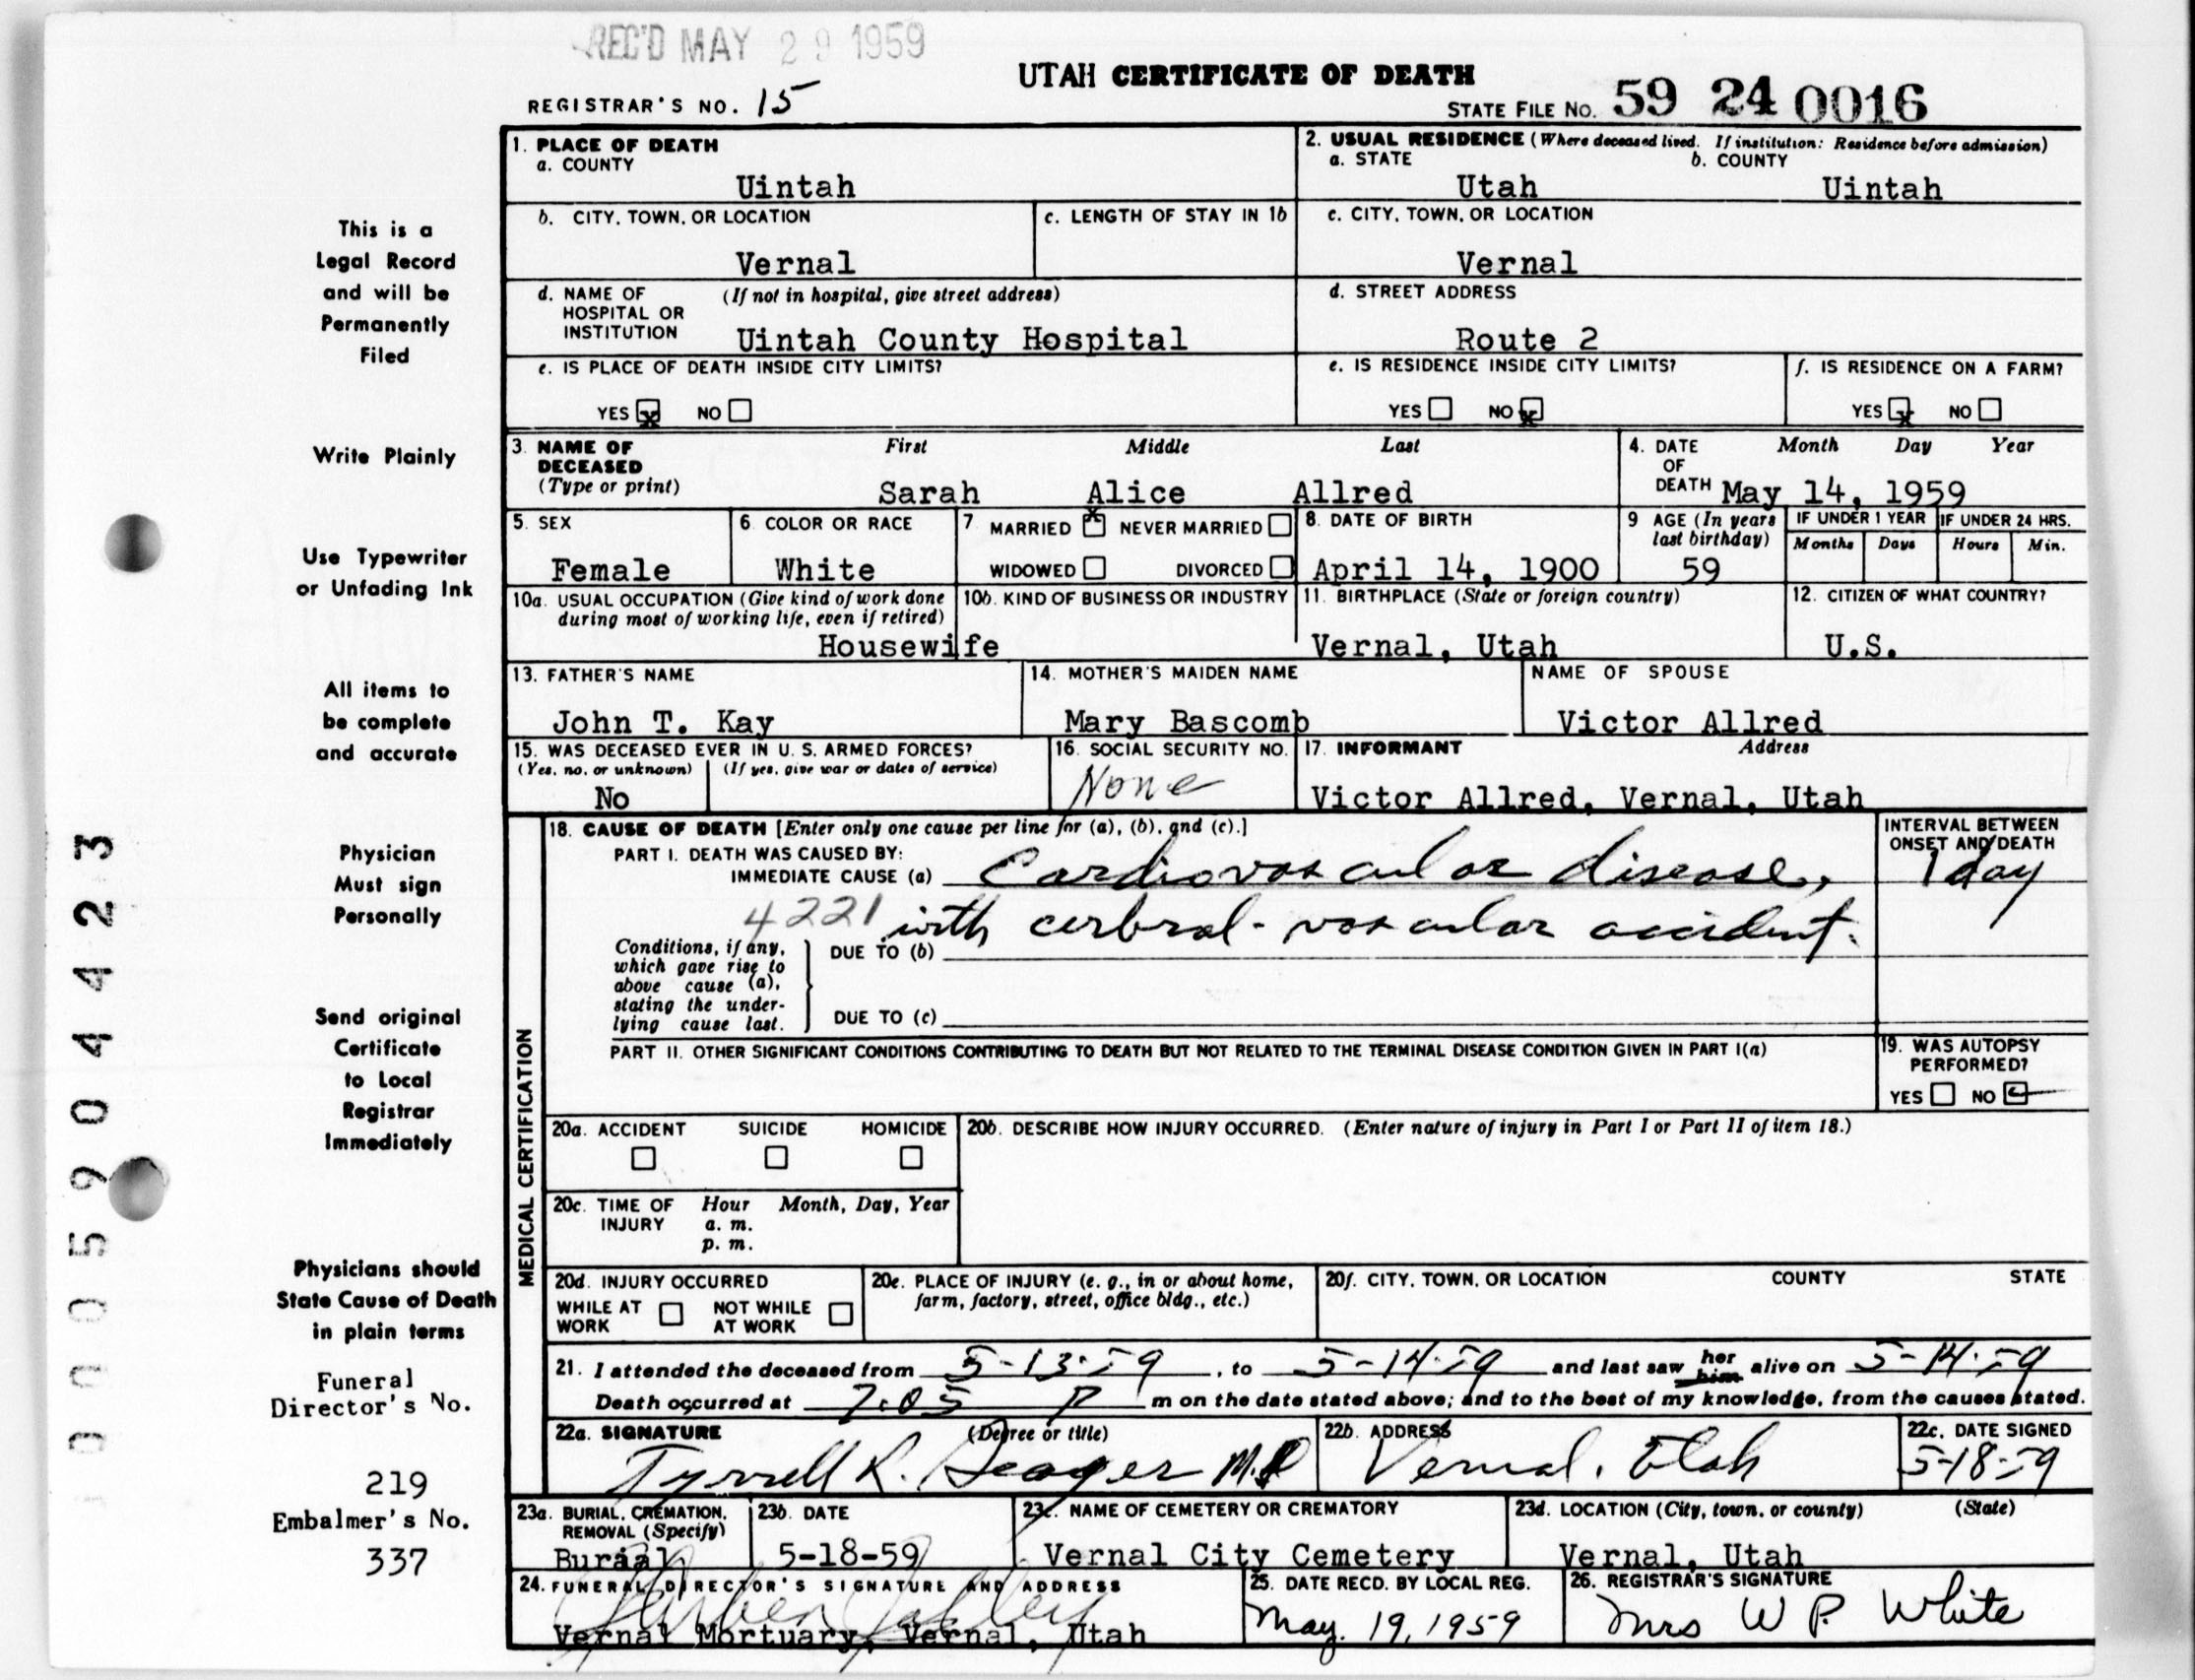 REC'D MAY 29 1959
UTAH CERTIFICATE OF DEATH
REGISTRAR'S NO. 15
STATE FILE No. 59 24 0016
1. PLACE OF DEATH
a. COUNTY
Uintah
2. USUAL RESIDENCE (Where deceased lived. If institution: Residence before admission)
a. STATE b. COUNTY
Utah Uintah
b. CITY, TOWN, OR LOCATION
Vernal
c. LENGTH OF STAY IN 1b
c. CITY, TOWN, OR LOCATION
Vernal
d. NAME OF (If not in hospital, give street address)
HOSPITAL OR
INSTITUTION Uintah County Hospital
d. STREET ADDRESS
Route 2
e. IS PLACE OF DEATH INSIDE CITY LIMITS?
YES x NO
e. IS RESIDENCE INSIDE CITY LIMITS?
YES NO x
f. IS RESIDENCE ON A FARM?
YES x NO
3. NAME OF DECEASED First Middle Last
(Type or print) Sarah Alice Allred
4. DATE OF DEATH Month Day Year
May 14, 1959
5. SEX
Female
6. COLOR OR RACE
White
7 MARRIED x NEVER MARRIED
WIDOWED DIVORCED
8. DATE OF BIRTH
April 14, 1900
9 AGE (In years last birthday)
59
IF UNDER 1 YEAR IF UNDER 24 HRS.
Months Days Hours Min.
10a. USUAL OCCUPATION (Give kind of work done
during most of working life, even if retired)
Housewife
10b. KIND OF BUSINESS OR INDUSTRY
11. BIRTHPLACE (State or foreign country)
Vernal, Utah
12. CITIZEN OF WHAT COUNTRY?
U.S.
13. FATHER'S NAME
John T. Kay
14. MOTHER'S MAIDEN NAME
Mary Bascomb
NAME OF SPOUSE
Victor Allred
15. WAS DECEASED EVER IN U. S. ARMED FORCES?
(Yes, no, or unknown) (If yes, give war or dates of service)
No
16. SOCIAL SECURITY NO.
None
17. INFORMANT Address
Victor Allred, Vernal, Utah
MEDICAL CERTIFICATION
18. CAUSE OF DEATH [Enter only one cause per line for (a), (b), and (c).]
PART I. DEATH WAS CAUSED BY:
IMMEDIATE CAUSE (a) Cardiovascular disease,
4221 with cerbral-vascular accident.
Conditions, if any,
which gave rise to
above cause (a),
stating the under-
lying cause last.
DUE TO (b)
DUE TO (c)
INTERVAL BETWEEN
ONSET AND DEATH
1 day
PART II. OTHER SIGNIFICANT CONDITIONS CONTRIBUTING TO DEATH BUT NOT RELATED TO THE TERMINAL DISEASE CONDITION GIVEN IN PART I(a)
19. WAS AUTOPSY
PERFORMED?
YES NO
20a. ACCIDENT SUICIDE HOMICIDE
20b. DESCRIBE HOW INJURY OCCURRED. (Enter nature of injury in Part I or Part II of item 18.)
20c. TIME OF INJURY Hour Month, Day, Year
a. m.
p. m.
20d. INJURY OCCURRED
WHILE AT WORK NOT WHILE AT WORK
20e. PLACE OF INJURY (e. g., in or about home,
farm, factory, street, office bldg., etc.)
20f. CITY, TOWN, OR LOCATION COUNTY STATE
21. I attended the deceased from 5-13-59, to 5-14-59 and last saw her him alive on 5-14-59
Death occurred at 7:05 P m on the date stated above; and to the best of my knowledge, from the causes stated.
22a. SIGNATURE (Degree or title)
Tyrrell R. Seager M.D
22b. ADDRESS
Vernal, Utah
22c. DATE SIGNED
5-18-59
23a. BURIAL, CREMATION,
REMOVAL (Specify)
Burial
23b. DATE
5-18-59
23c. NAME OF CEMETERY OR CREMATORY
Vernal City Cemetery
23d. LOCATION (City, town, or county) (State)
Vernal, Utah
24. FUNERAL DIRECTOR'S SIGNATURE AND ADDRESS
Vernal Mortuary, Vernal, Utah
25. DATE RECD. BY LOCAL REG.
May. 19, 1959
26. REGISTRAR'S SIGNATURE
Mrs W P. White
This is a
Legal Record
and will be
Permanently
Filed
Write Plainly
Use Typewriter
or Unfading Ink
All items to
be complete
and accurate
Physician
Must sign
Personally
Send original
Certificate
to Local
Registrar
Immediately
Physicians should
State Cause of Death
in plain terms
Funeral
Director's No.
219
Embalmer's No.
337
0005904423